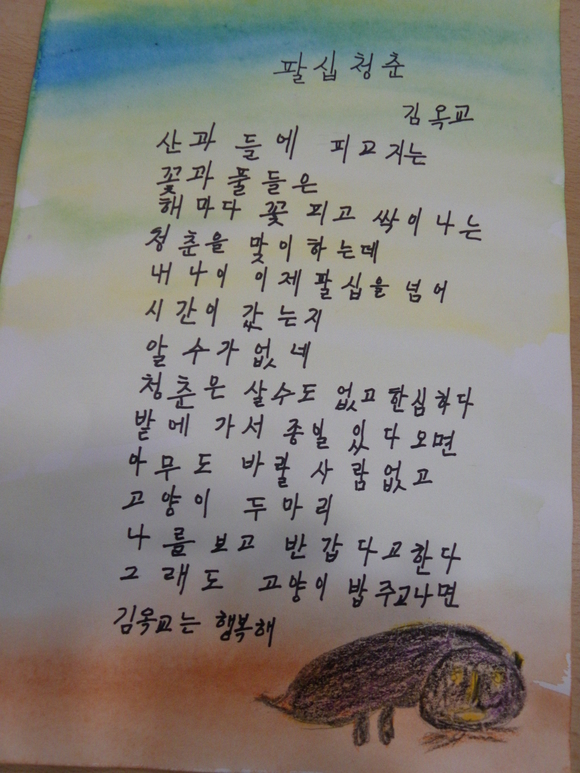 팔십청춘
김옥교
산과 들에 피고 지는
꽃과 풀들은
해마다 꽃 피고 싹이 나는
청춘을 맞이하는데
내 나이 이제 팔십을 넘어
시간이 갔는지
알 수가 없네
청춘은 살수도 없고 한심하다
밭에 가서 종일 있다 오면
아무도 바랄 사람 없고
고양이 두마리
나를 보고 반갑다고한다
그래도 고양이 밥주고나면
김옥교는 행복해